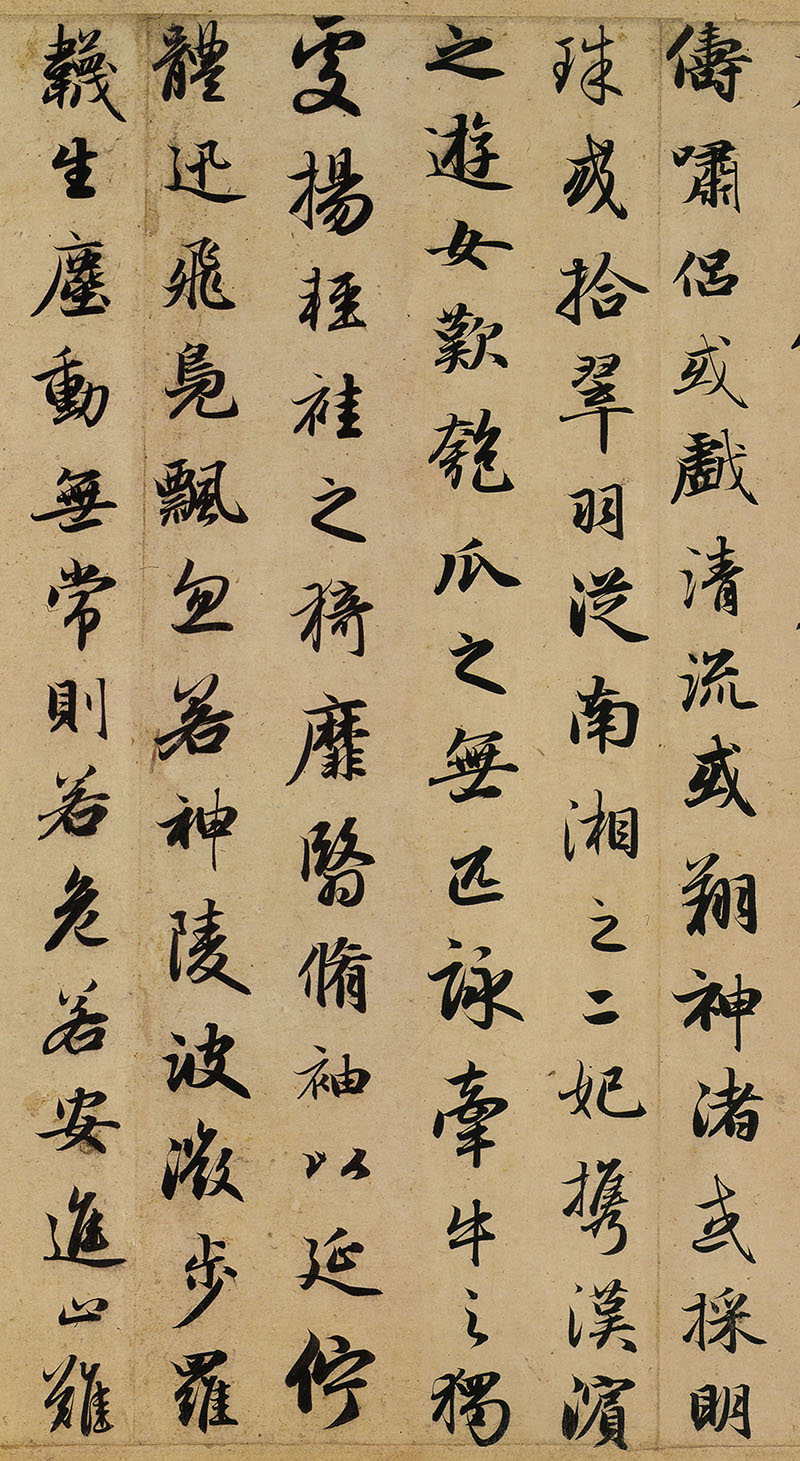 儔嘯侶或戲清流或翔神渚或採明
珠或拾翠羽從南湘之二妃攜漢濱
之遊女歎匏瓜之無匹詠牽牛之獨
處揚輕袿之猗靡翳脩袖以延佇
體迅飛鳧飄忽若神陵波微步羅
襪生塵動無常則若危若安進止難